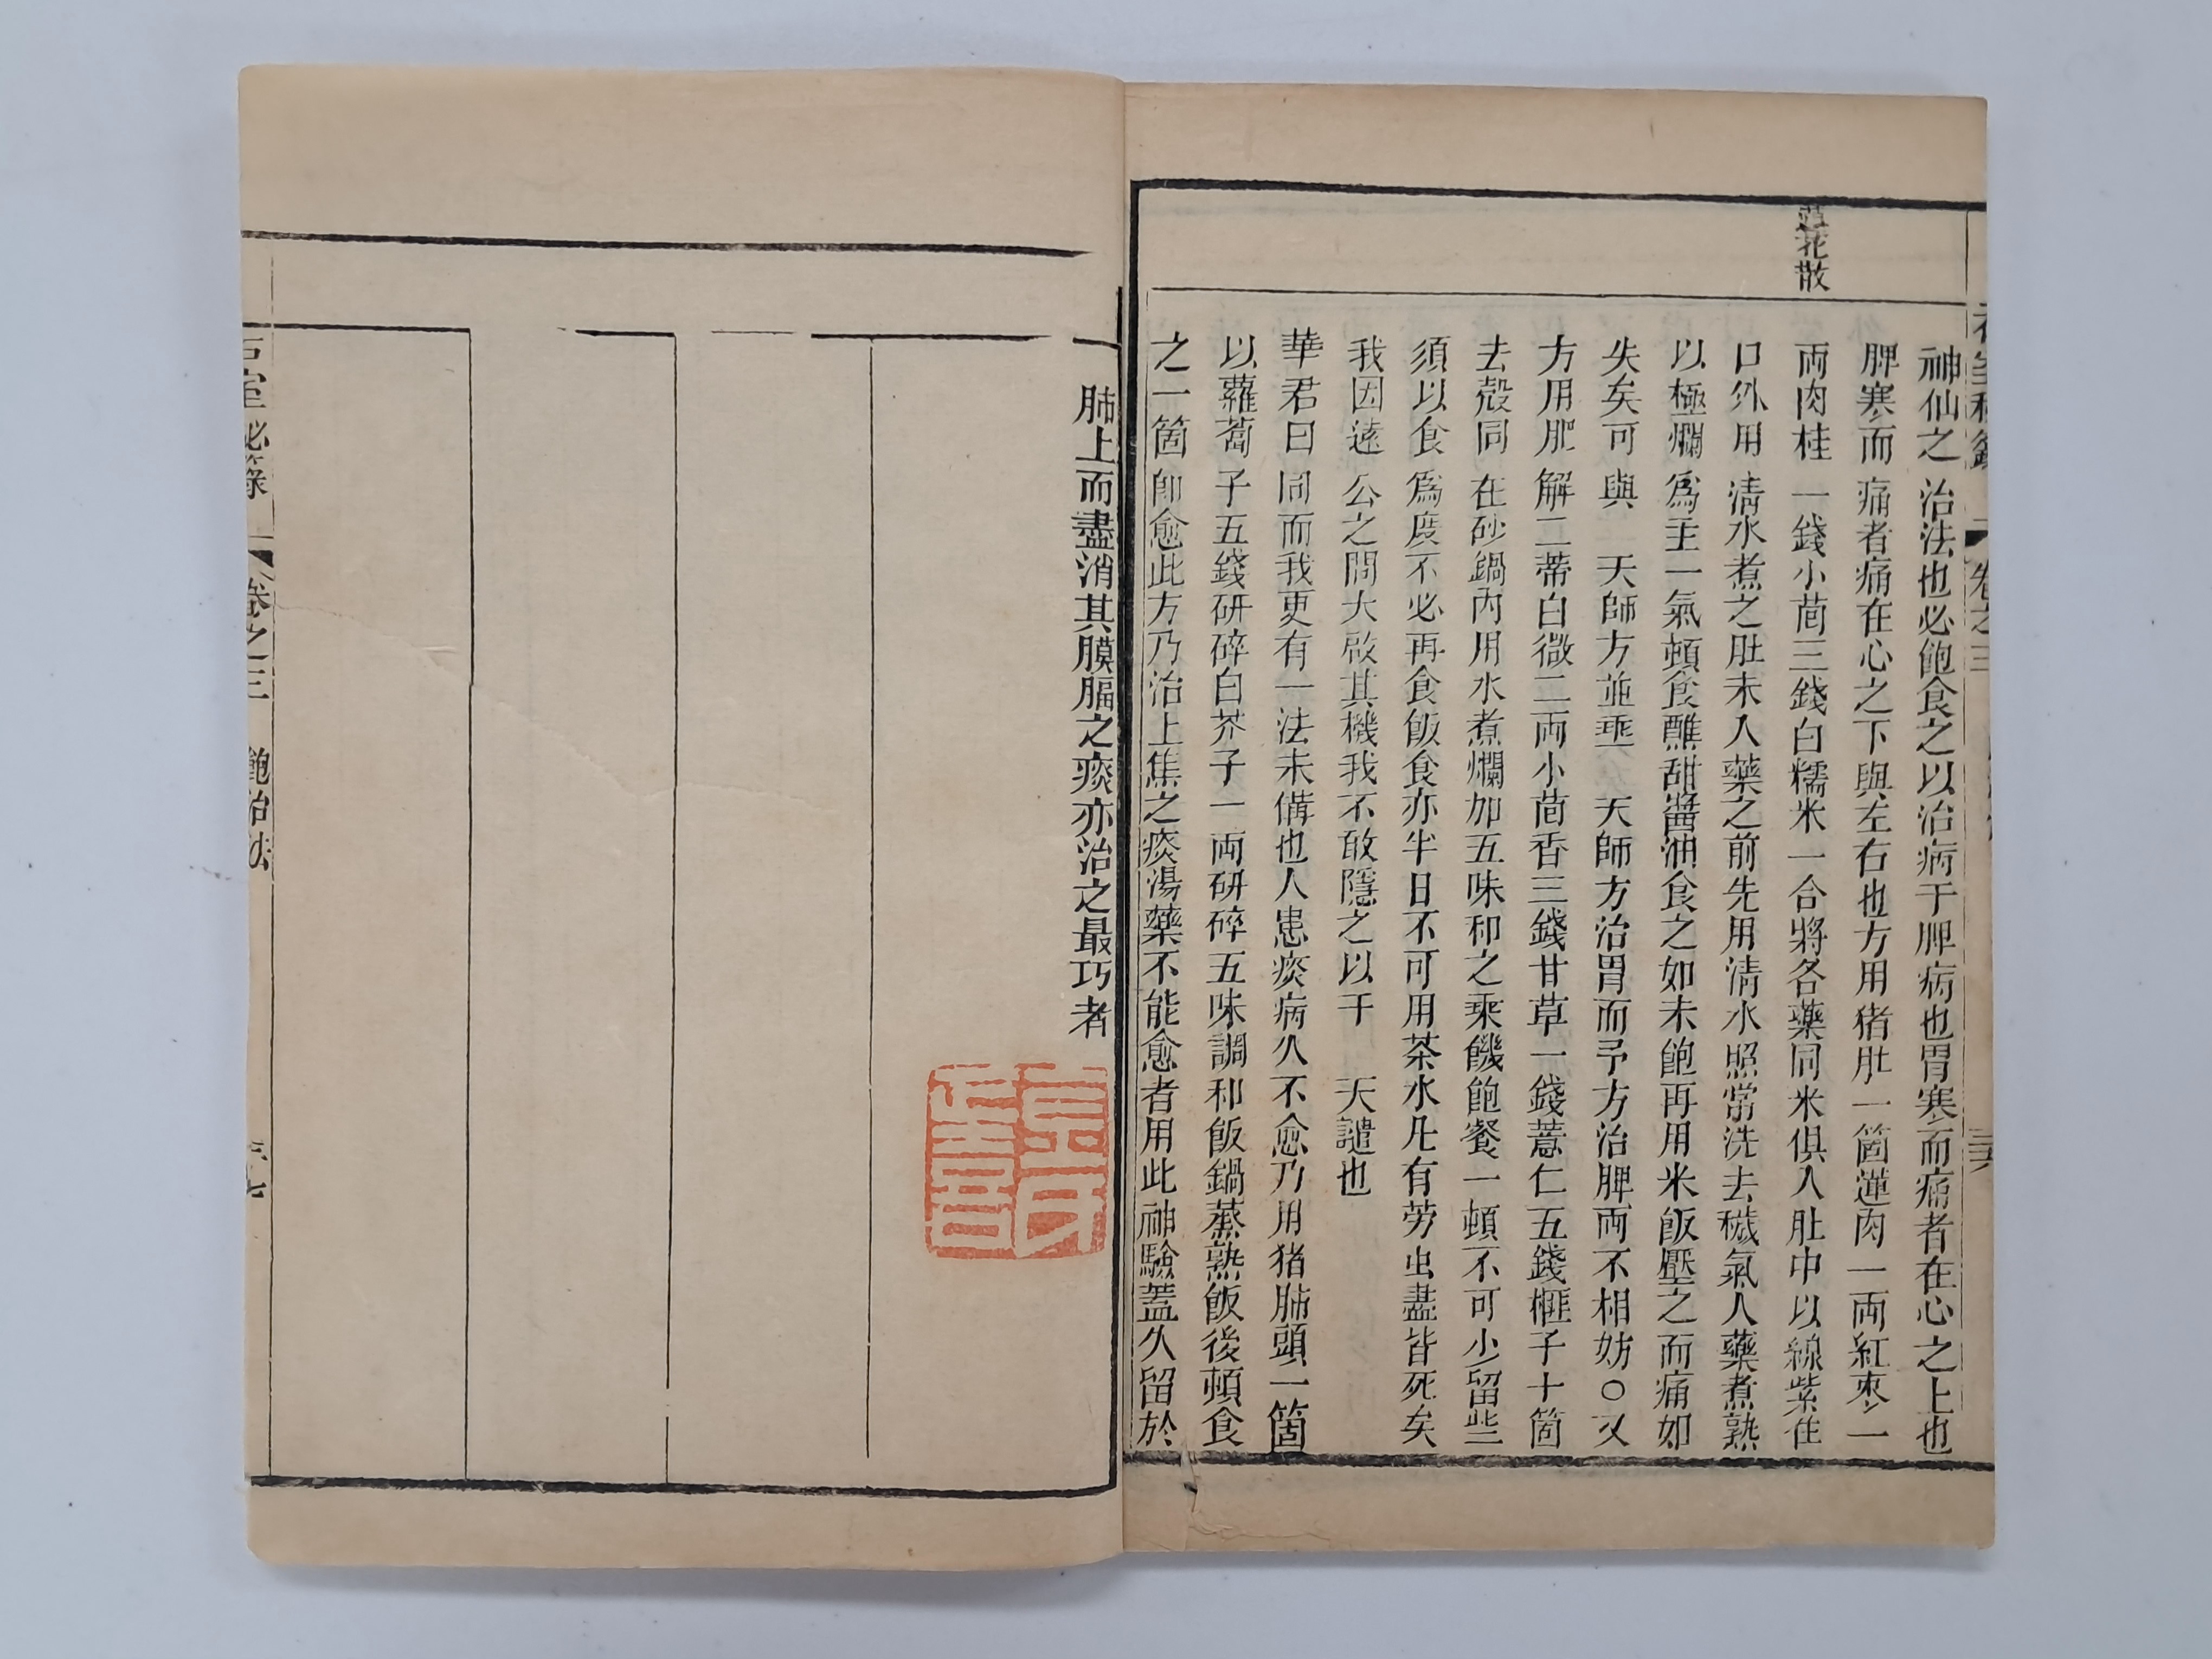 神仙之治法也必飽食之以治病于脾病也胃寒而痛者在心之上也
脾寒而痛者痛在心之下與左右也方用猪肚一箇蓮肉一両紅棗一
両肉桂一錢小茴三錢白糯米一合將各藥同米俱入肚中以線紮住
口外用清水煮之肚未入藥之前先用清水照常洗去穢氣入藥煮熟
以極爛爲主一氣頓食蘸甜醬油食之如未飽再用米飯壓之而痛如
失矣可與　天師方並垂　天師方治胃而予方治脾両不相妨○又
方用肥鮮二蒂白薇二両小茴香三錢甘草一錢薏仁五錢榧子十箇
去殼同在砂鍋內用水煮爛加五味和之乘饑飽餐一頓不可少留些
須以食爲度不必再食飯食亦半日不可用茶水凡有劳虫盡皆死矣
我因遠公之問大啟其機我不敢隱之以干　天譴也
華君曰同而我更有一法未備也人患痰病久不愈乃用猪肺頭一箇
以蘿蔔子五錢研碎白芥子一両研碎五味調和飯鍋蒸熟飯後頓食
之一箇卽愈此方乃治上焦之痰湯藥不能愈者用此神驗蓋久留於
肺上而盡消其膜膈之痰亦治之最巧者
石室必錄
卷之三
飽治法